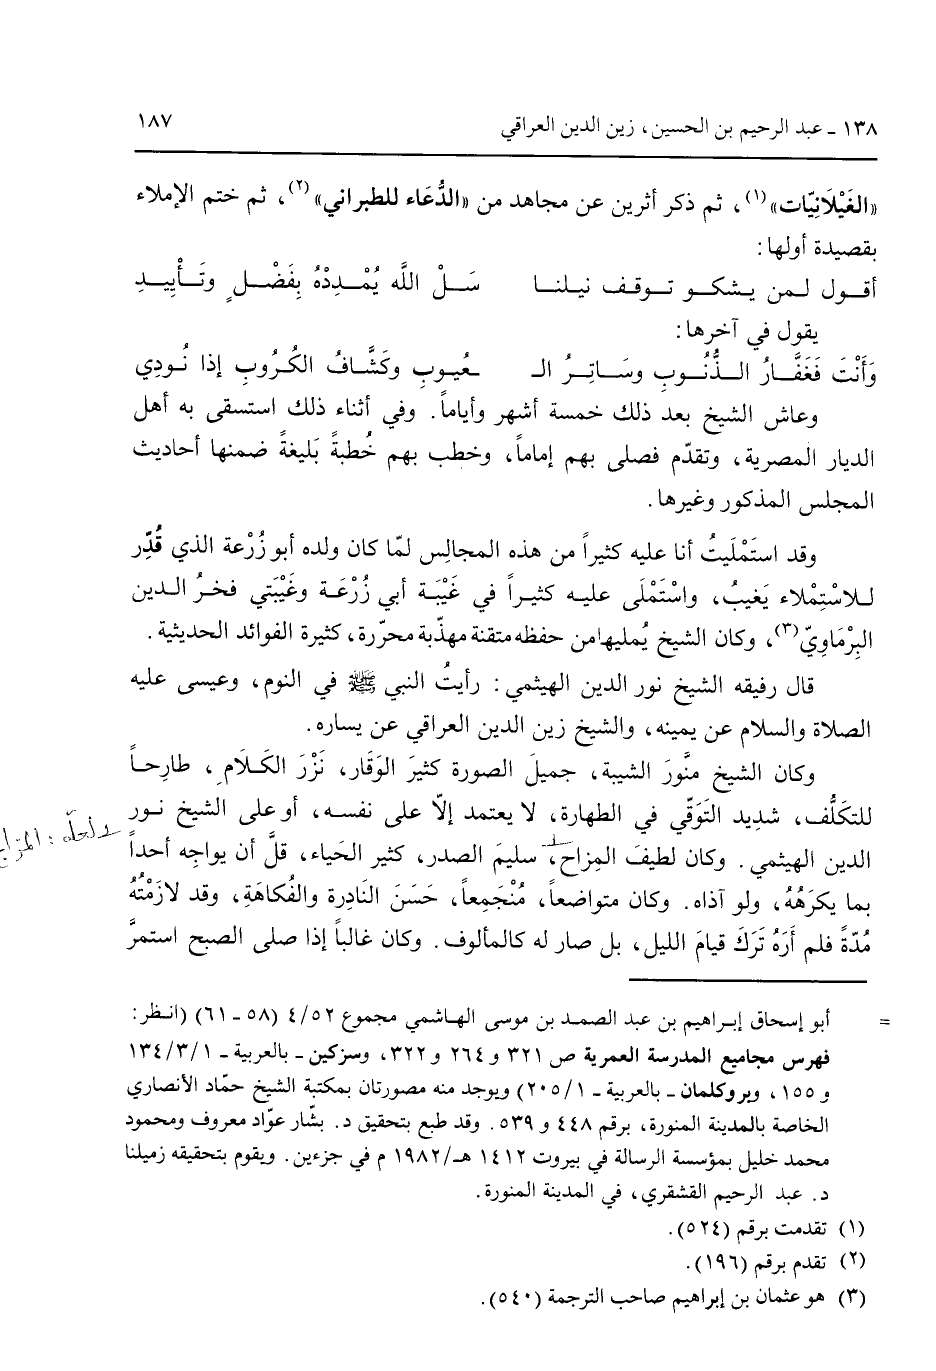 ١٣٨ ـ عبد الرحيم بن الحسين، زين الدين العراقي ١٨٧
«الغَيْلَانِيّات»(١)، ثم ذكر أثرين عن مجاهد من «الدُّعَاء للطبراني»(٢)، ثم ختم الإملاء
بقصيدة أولها:
أقـول لـمن يـشكـو تـوقـف نيـلنـا سَـلْ اللَّه يُمْـدِدْهُ بِفَضْـلٍ وتَـأْيِيـدِ
يقول في آخرها:
وَأَنْتَ فَغَفَّـارُ الـذُّنُوبِ وسَـاتِـرُ الـ ـعُيـوبِ وكَشَّافُ الكُرُوبِ إذا نُـودِي
وعاش الشيخ بعد ذلك خمسة أشهر وأياماً. وفي أثناء ذلك استسقى به أهل
الديار المصرية، وتقدّم فصلى بهم إماماً، وخطب بهم خُطبةً بَليغةً ضمنها أحاديث
المجلس المذكور وغيرها.
وقد استَمْلَيتُ أنا عليه كثيراً من هذه المجالس لمّا كان ولده أبو زُرْعة الذي قُدِّر
للاسْتِمْلاء يَغيبُ، واسْتَمْلَى عليـه كثيـراً في غَيْبَة أبي زُرْعَـة وغَيْبَتي فخـرُ الـدين
البِرْمَاوِيّ(٣)، وكان الشيخ يُمليها من حفظه متقنة مهذّبة محرّرة، كثيرة الفوائد الحديثية.
قال رفيقه الشيخ نور الدين الهيثمي: رأيتُ النبي ﷺ في النوم، وعيسى عليه
الصلاة والسلام عن يمينه، والشيخ زين الدين العراقي عن يساره.
وكان الشيخ منَّورَ الشيبة، جميلَ الصورة كثيرَ الوَقَار، نَزْرَ الكَـلَامِ، طارِحـاً
للتكَلُّف، شدِيد التَوَقّي في الطهارة، لا يعتمد إلاّ على نفسـه، أو على الشيخ نور
الدين الهيثمي. وكان لطيفَ المِزاحِ، سليمَ الصدر، كثير الحَياء، قلَّ أن يواجِه أحداً
بما يكرَهُهُ، ولو آذاه. وكان متواضعاً، مُنْجَمِعاً، حَسَنَ النَادِرة والفُكاهَةِ، وقد لازَمْتُهُ
مُدّةً فلم أَرَهُ تَرَكَ قيامَ الليل، بل صار له كالمألوف. وكان غالباً إذا صلى الصبح استمرَّ
= أبو إسحاق إبـراهيم بن عبد الصمـد بن موسى الهـاشمي مجموع ٤/٥٢ (٥٨ ـ ٦١) (انـظر:
فهرس مجاميع المدرسة العمرية ص ٣٢١ و ٢٦٤ و ٣٢٢، وسزكين ـ بالعربية ـ ١٣٤/٣/١
و ١٥٥، وبروكلمان ـ بالعربية ـ ٢٠٥/١) ويوجد منه مصورتان بمكتبة الشيخ حمّاد الأنصاري
الخاصة بالمدينة المنورة، برقم ٤٤٨ و ٥٣٩. وقد طبع بتحقيق د. بشّار عوّاد معروف ومحمود
محمد خليل بمؤسسة الرسالة في بيروت ١٤١٢ هـ/١٩٨٢ م في جزءين. ويقوم بتحقيقه زميلنا
د. عبد الرحيم القشقري، في المدينة المنورة.
(١) تقدمت برقم (٥٢٤).
(٢) تقدم برقم (١٩٦).
(٣) هو عثمان بن إبراهيم صاحب الترجمة (٥٤٠).
ـ لعله: المزاج